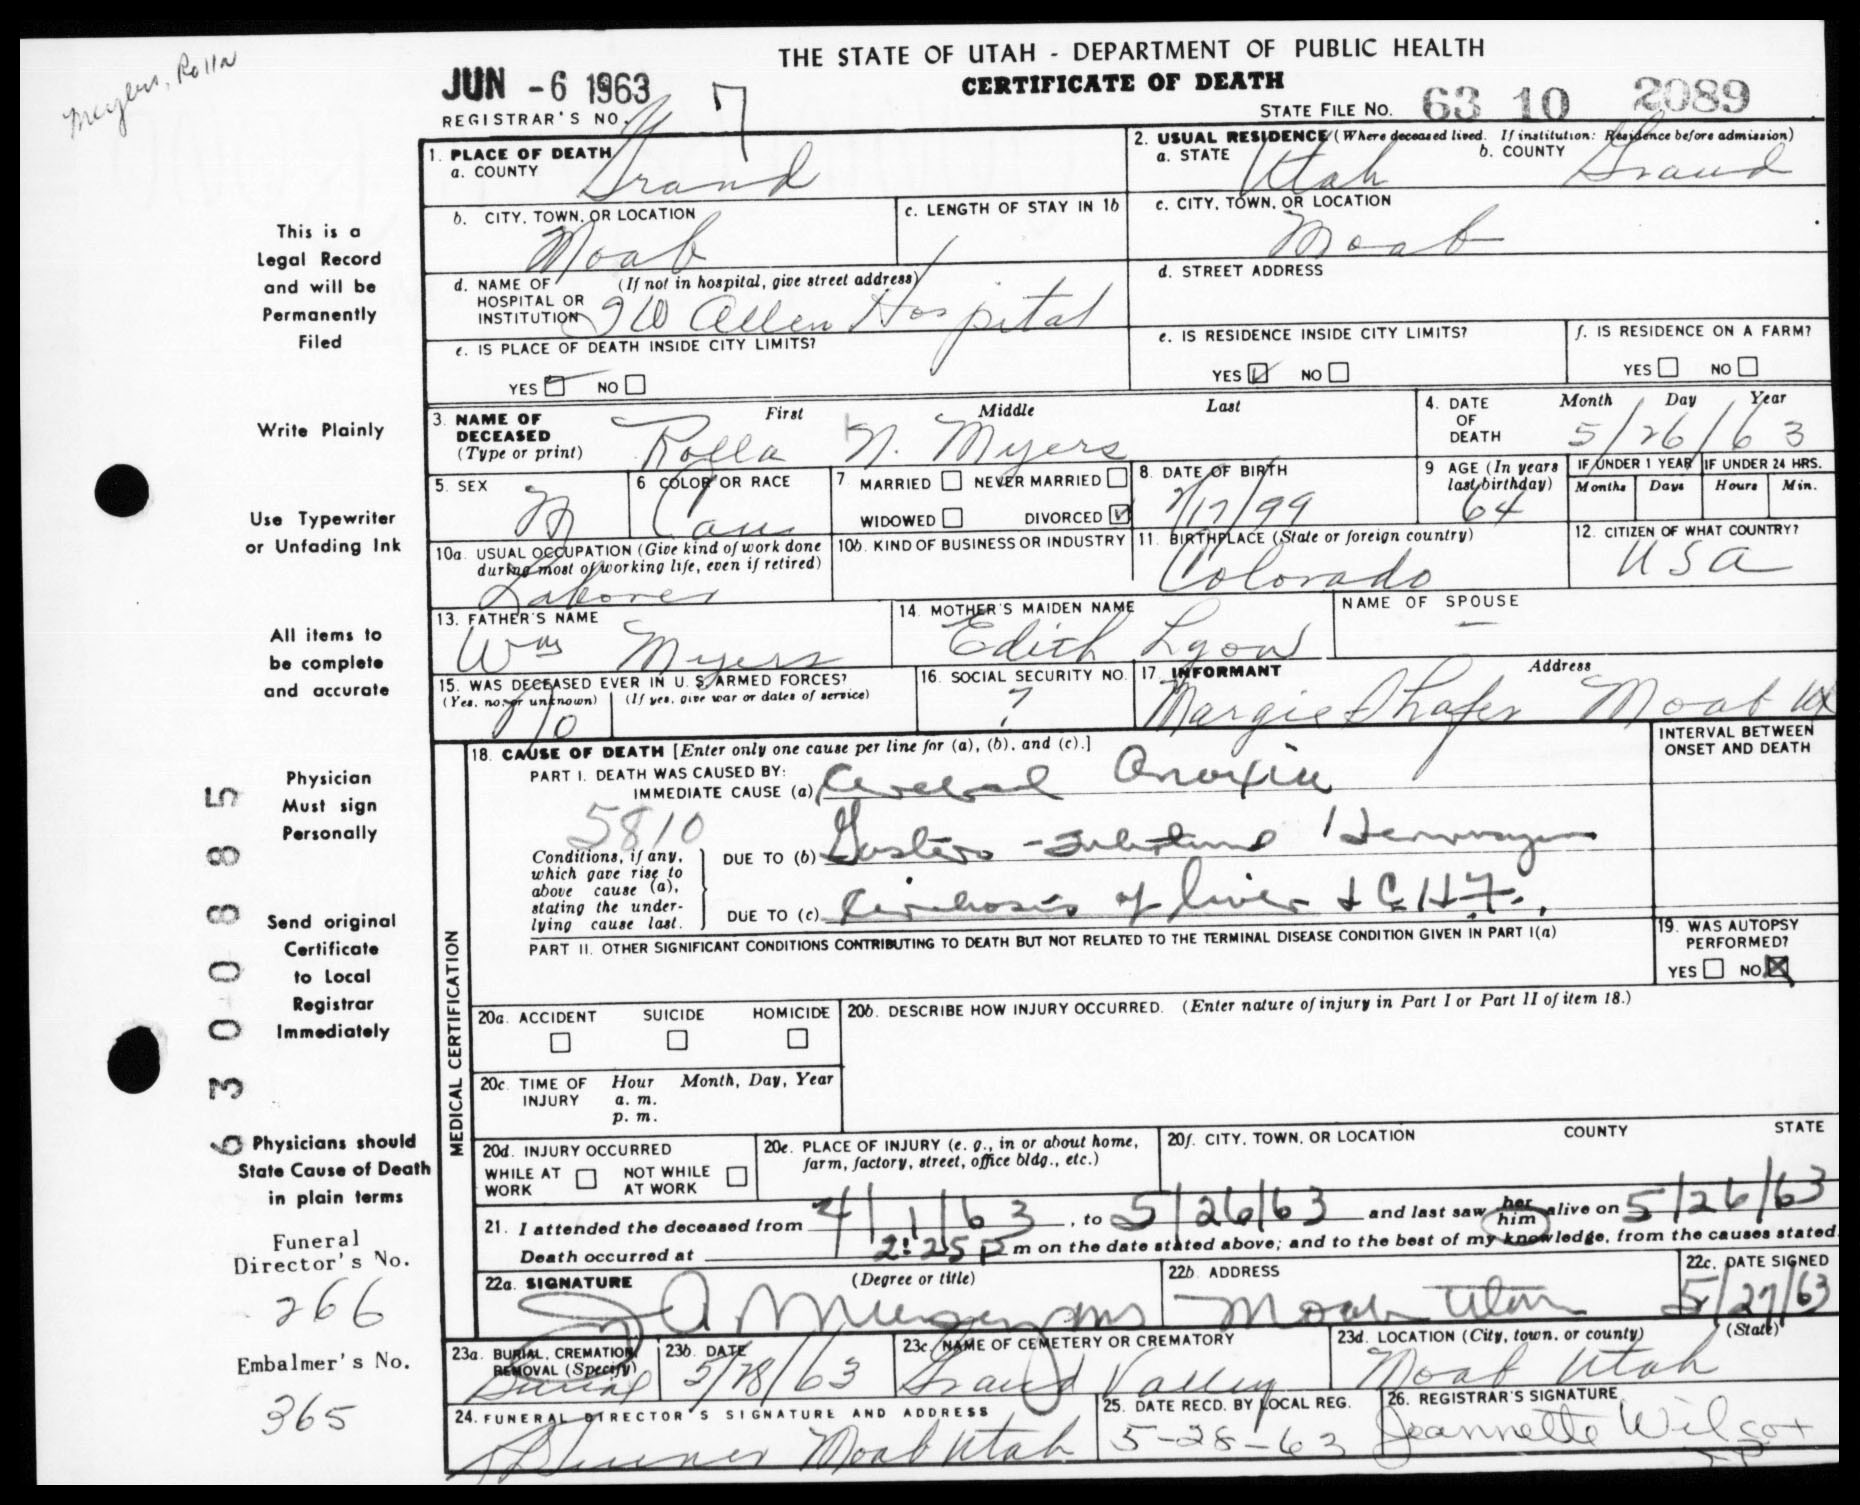 Meyers, Rolla
THE STATE OF UTAH - DEPARTMENT OF PUBLIC HEALTH
CERTIFICATE OF DEATH
JUN -6 1963
REGISTRAR'S NO. 7
STATE FILE NO. 63 10 2089
1. PLACE OF DEATH
a. COUNTY Grand
2. USUAL RESIDENCE (Where deceased lived. If institution: Residence before admission)
a. STATE Utah b. COUNTY Grand
b. CITY, TOWN, OR LOCATION Moab
c. LENGTH OF STAY IN 1b
c. CITY, TOWN, OR LOCATION Moab
d. NAME OF HOSPITAL OR INSTITUTION (If not in hospital, give street address) Allen Hospital
d. STREET ADDRESS
e. IS PLACE OF DEATH INSIDE CITY LIMITS?
YES NO
e. IS RESIDENCE INSIDE CITY LIMITS?
YES NO
f. IS RESIDENCE ON A FARM?
YES NO
3. NAME OF DECEASED (Type or print) First Middle Last
Rolla N. Myers
4. DATE OF DEATH Month Day Year
5/26/63
5. SEX M
6 COLOR OR RACE Caus
7 MARRIED NEVER MARRIED
WIDOWED DIVORCED
8. DATE OF BIRTH /17/99
9 AGE (In years last birthday) 64
IF UNDER 1 YEAR IF UNDER 24 HRS.
Months Days Hours Min.
10a. USUAL OCCUPATION (Give kind of work done during most of working life, even if retired)
Laborer
10b. KIND OF BUSINESS OR INDUSTRY
11. BIRTHPLACE (State or foreign country)
Colorado
12. CITIZEN OF WHAT COUNTRY?
USA
13. FATHER'S NAME
Wm Myers
14. MOTHER'S MAIDEN NAME
Edith Lyon
NAME OF SPOUSE
—
15. WAS DECEASED EVER IN U. S. ARMED FORCES?
(Yes, no, or unknown) (If yes, give war or dates of service)
No
16. SOCIAL SECURITY NO.
?
17. INFORMANT Address
Margie Shafer Moab Ut
MEDICAL CERTIFICATION
18. CAUSE OF DEATH [Enter only one cause per line for (a), (b), and (c).]
INTERVAL BETWEEN ONSET AND DEATH
PART I. DEATH WAS CAUSED BY:
IMMEDIATE CAUSE (a) Cerebral Anoxia
5810
Conditions, if any, which gave rise to above cause (a), stating the underlying cause last.
DUE TO (b) Gastro-Intestinal Hemorrhage
DUE TO (c) Cirrhosis of liver & C.H.F.
PART II. OTHER SIGNIFICANT CONDITIONS CONTRIBUTING TO DEATH BUT NOT RELATED TO THE TERMINAL DISEASE CONDITION GIVEN IN PART I(a)
19. WAS AUTOPSY PERFORMED?
YES NO
20a. ACCIDENT SUICIDE HOMICIDE
20b. DESCRIBE HOW INJURY OCCURRED. (Enter nature of injury in Part I or Part II of item 18.)
20c. TIME OF INJURY Hour Month, Day, Year
a. m.
p. m.
20d. INJURY OCCURRED
WHILE AT WORK NOT WHILE AT WORK
20e. PLACE OF INJURY (e. g., in or about home, farm, factory, street, office bldg., etc.)
20f. CITY, TOWN, OR LOCATION COUNTY STATE
21. I attended the deceased from 4/1/63, to 5/26/63 and last saw her him alive on 5/26/63
Death occurred at 2:25 p m on the date stated above; and to the best of my knowledge, from the causes stated.
22a. SIGNATURE (Degree or title)
22b. ADDRESS
Moab Utah
22c. DATE SIGNED
5/27/63
23a. BURIAL, CREMATION, REMOVAL (Specify)
Burial
23b. DATE
5/28/63
23c. NAME OF CEMETERY OR CREMATORY
Grand Valley
23d. LOCATION (City, town, or county) (State)
Moab Utah
24. FUNERAL DIRECTOR'S SIGNATURE AND ADDRESS
Moab Utah
25. DATE RECD. BY LOCAL REG.
5-28-63
26. REGISTRAR'S SIGNATURE
Jeannette Wilcox
This is a
Legal Record
and will be
Permanently
Filed
Write Plainly
Use Typewriter
or Unfading Ink
All items to
be complete
and accurate
Physician
Must sign
Personally
Send original
Certificate
to Local
Registrar
Immediately
Physicians should
State Cause of Death
in plain terms
Funeral
Director's No.
266
Embalmer's No.
365
6300885